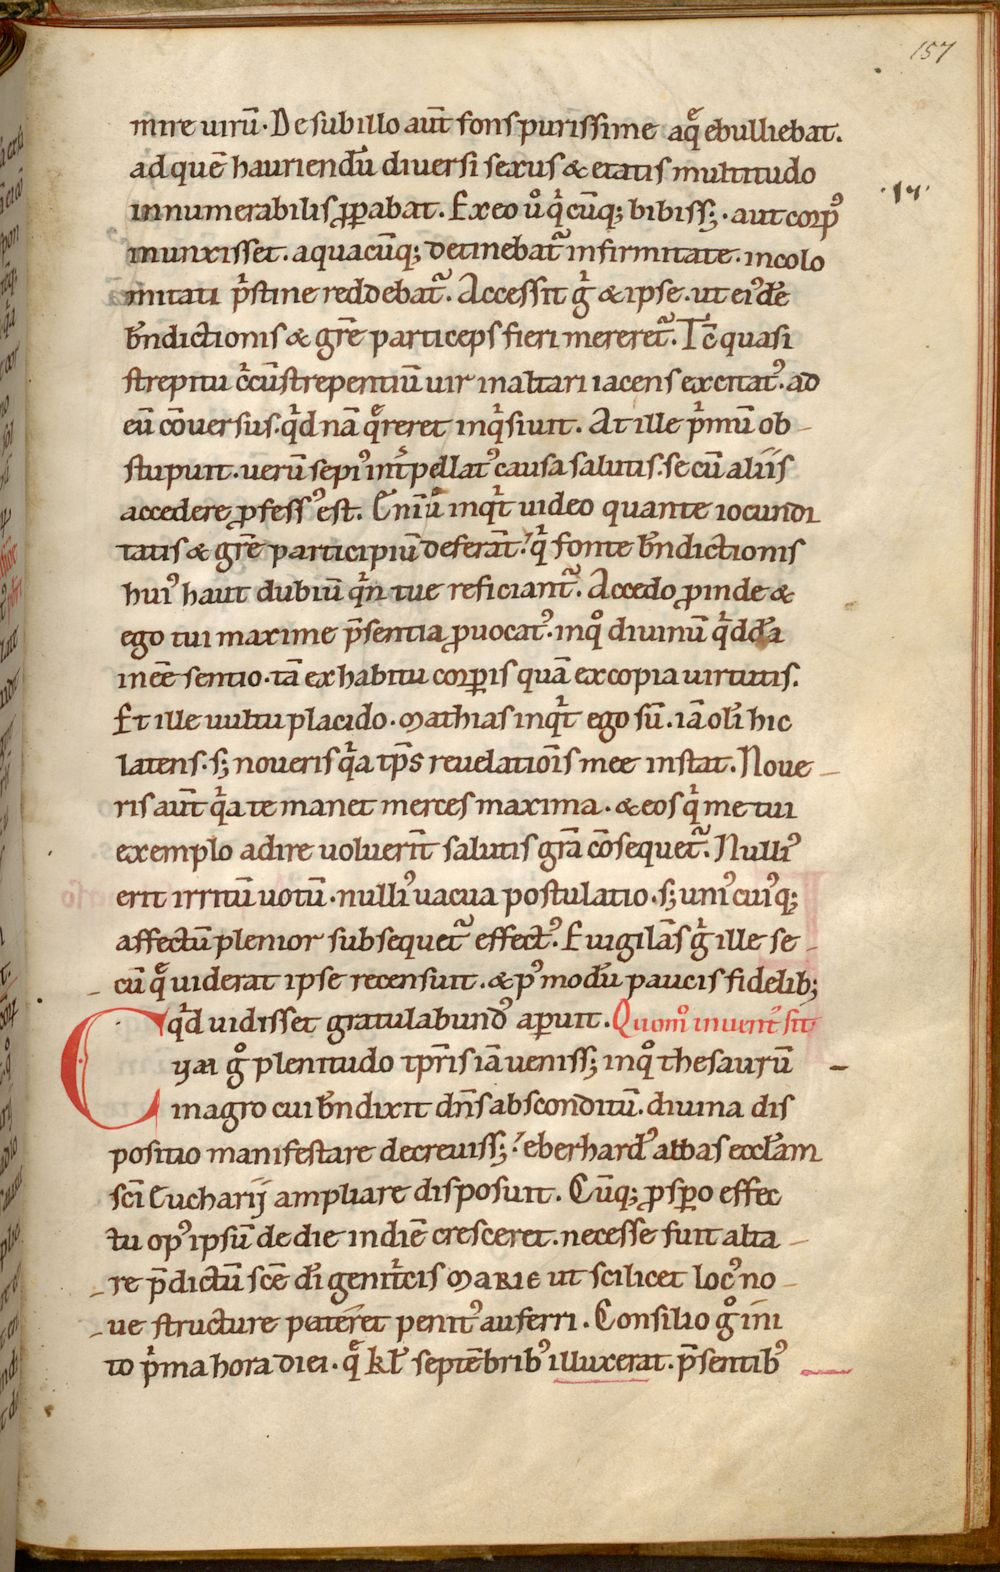 157
mire uirū. De sub illo aūt fons purissime aqͤ ebulliebat.
ad quē hauriendū diuersi sexus & etatis multitudo
.14.
innumerabilis ꝓꝑabat. Ex eo uͦ qͥcūq; bibiss;. aut corpꝰ
inunxisset. a quacūq; detinebat᷑ infirmitate. incolo
mitati pͥstine reddebat᷑. Accessit gͥ & ipse. ut eiꝰdē
bn̄dictionis & grē particeps fieri mereret᷑. Tc̄ quasi
strepitu cͥcūstrepentiū uir in altari iacens excitatꝰ. ad
eū cōuersus. qͥd nā qͤreret inqͥsiuit. At ille pͥmū ob-
stupuit. uerū sepiꝰ int̄pellatꝰ causa salutis. se cū aliis
accedere ꝓfessꝰ est. Cū inqͥt uideo quante iocundi
tatis & grē participiū deferāt. qͥ fonte bn̄dictionis
huiꝰ haut dubiū qͥn tue reficiant᷑. Accedo ꝓinde &
ego tui maxime p̄sentia ꝓuocatꝰ. inqͦ diuinū qͥddā
inēē sentio. tā ex habitu corꝑis quā ex copia uirtutis.
Et ille uultu placido. Mathias inqͥt ego sū. iā oli hic
latens. s; noueris qͥa tp̄s reuelatiōis mee instat. Noue-
ris aūt qͥa te manet merces maxima. & eos qͥ me tui
exemplo adire uoluerīt salutis grā cōsequet᷑. Nulliꝰ
erit irritū uotū. nulliꝰ uacua postulatio. s; uniꝰcuiꝰq;
affectū plenior subsequet᷑ effectꝰ. Euigilās gͥ ille se-
cū qͤ uiderat ipse recensuit. & pꝰmodū paucis fidelib;
qͥd uidisset gratulabundꝰ aperuit. Quomͦ inuentꝰ sit
Cum gͦ plenitudo tpr̄is iā ueniss; inqͦ thesaurū
in agro cui bn̄dixit dn̄s absconditū. diuina dis
positio manifestare decreuiss; eberhardꝰ abbas eccłam
sc̄i Eucharij ampliare disposuit. Cūq; ꝓsꝑo effec
tu opꝰ ipsū de die in diē cresceret. necesse fuit alta-
re p̄dictū sc̄e di genitͥcis MARIE ut scilicet locꝰ no-
ue structure pateret penitꝰ auferri. Consilio gͦ ini
to pͥma hora diei. qͤ kł septēbribꝰ illuxerat. p̄sentibꝰ